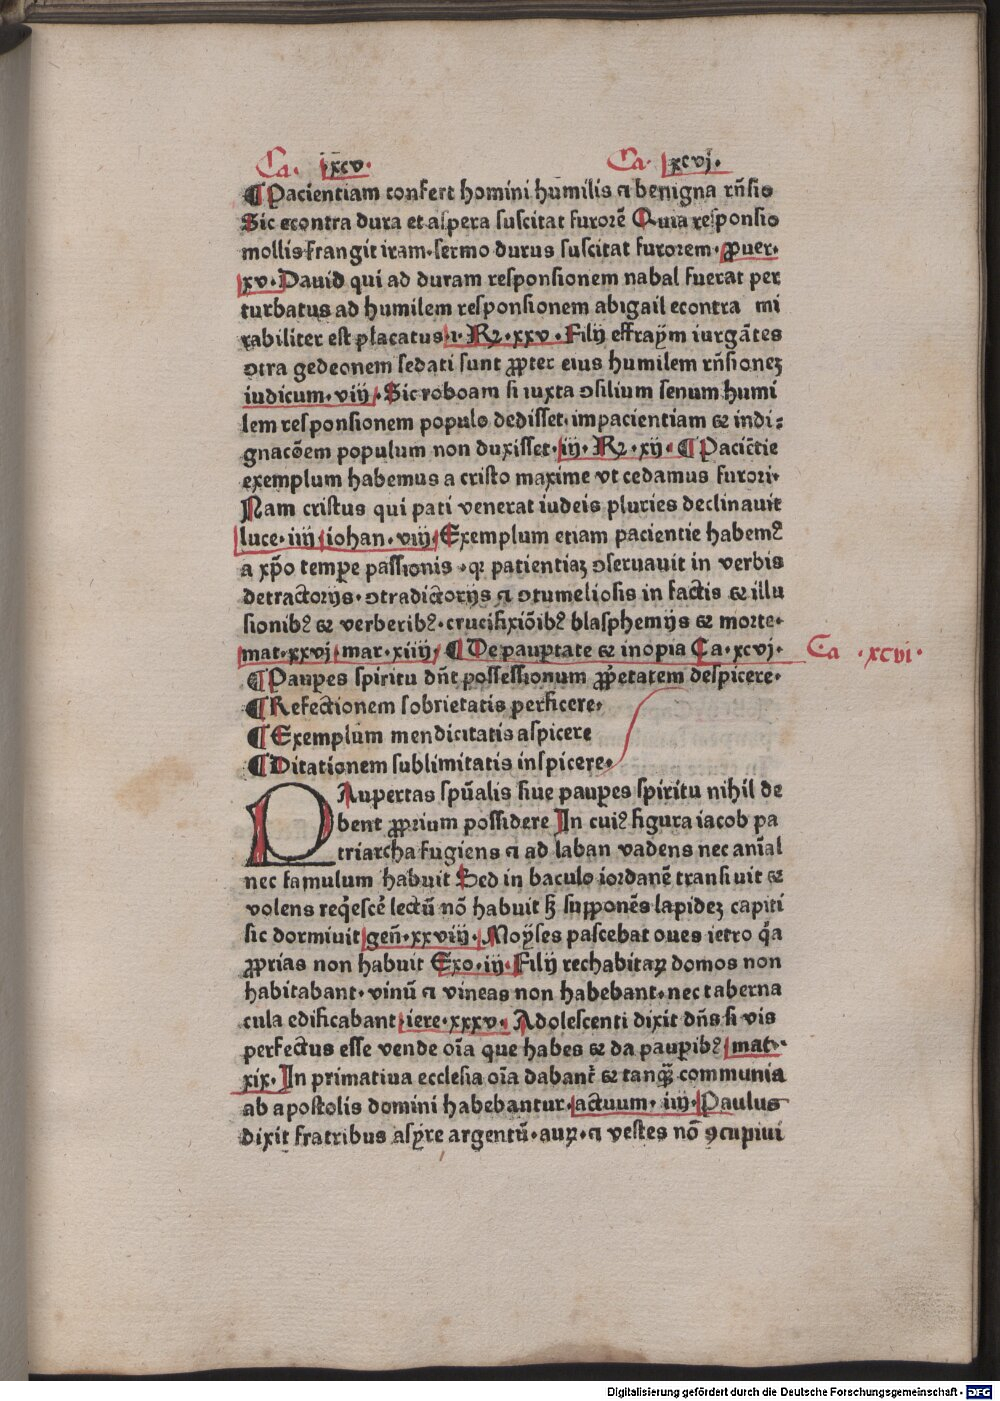 Ca. xcv. Ca. xcvj.
¶ Pacientiam confert homini humilis ⁊ benigna rñsio
Sic econtra dura et aspera suscitat furorē Quia responsio
mollis frangit iram. sermo durus suscitat furorem. ꝓuer.
xv. Dauid qui ad duram responsionem nabal fuerat per
turbatus ad humilem responsionem abigail econtra mi
rabiliter est placatus .i. Rꝝ. xxv. Filij effraym iurgātes
ↄtra gedeonem sedati sunt ꝓpter eius humilem rñsioneꝫ
iudicum. viij. Sic roboam si iuxta ↄsilium senum humi
lem responsionem populo dedisset. impacientiam et indi⸗
gnacōem populum non duxisset. iij. Rꝝ. xij. ¶ Paciētie
exemplum habemus a cristo maxime vt cedamus furori.
Nam cristus qui pati venerat iudeis pluries declinauit
luce. iiij iohan. viij. Exemplum etiam pacientie habemꝰ
a xp̄o tempe̲ passionis . qꝛ patientiaꝫ ↄseruauit in verbis
detractorijs. ↄtradictorijs ⁊ ↄtumeliosis in factis et illu
sionibꝰ et verberibꝰ. crucifixiōibꝰ blasphemijs et morte.
mat. xxvj mar. xiiij. ¶ De paup̲tate et inopia Ca. xcvj. Ca . xcvi.
¶ Paup̲es spiritu dñt possessionum ꝓp̲etatem despicere.
¶ Refectionem sobrietatis perficere.
¶ Exemplum mendicitatis aspicere
¶ Ditationem sublimitatis inspicere.
PAupertas spūalis siue paup̲es spiritu nihil de
bent ꝓprium possidere In cuiꝰ figura iacob pa
triarcha fugiens ⁊ ad laban vadens nec anīal
nec famulum habuit Sed in baculo iordanē transiuit et
volens reqͥescē lectū nō habuit sꝫ supponēs lapideꝫ capiti
sic dormiuit geñ. xxviij. Moyses pascebat oues ietro qͥa
ꝓprias non habuit Exo. iij. Filij rechabitaꝝ domos non
habitabant. vinū ⁊ vineas non habebant. nec taberna
cula edificabant iere. xxxv. Adolescenti dixit dñs si vis
perfectus esse vende oīa que habes et da paup̲ibꝰ mat.
xix. In primatiua ecclesia oīa dabant᷑ et tanqͣꝫ communia
ab apostolis domini habebantur. actuum. iiij. Paulus
dixit fratribus aspe̲re argentū. auꝝ. ⁊ vestes nō ꝯcupiui
Digitalisierung gefördert durch die Deutsche Forschungsgemeinschaft - DFG